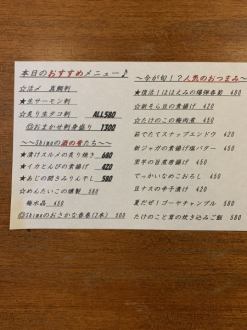 本日のおすすめメニュー♪
☆活〆 真鯛刺
★生サーモン刺
☆炙り生タコ刺 ALL580
◎おまかせ刺身盛り 1300
～～Shimoの酒の肴たち～～
★漬けスルメの炙り焼き 680
★イカとんびの素揚げ 420
★あじの開きみりん干し 580
☆めんたいこの燻製 580
梅水晶 450
◎Shimoのおさかな春巻(2本) 500
～今が旬！？人気のおつまみ～
★復活！ほほえみの爆弾春巻 480
☆新そら豆の素揚げ 420
☆たけのこの梅肉煮 450
茹でたてスナップエンドウ 420
新ジャガの素揚げ塩バター 450
里芋の旨煮唐揚げ 450
でっかいなめこおろし 450
豆ナスの辛子漬け 420
夏だぜ！ゴーヤチャンプル 580
たけのこと茸の炊き込みご飯 580